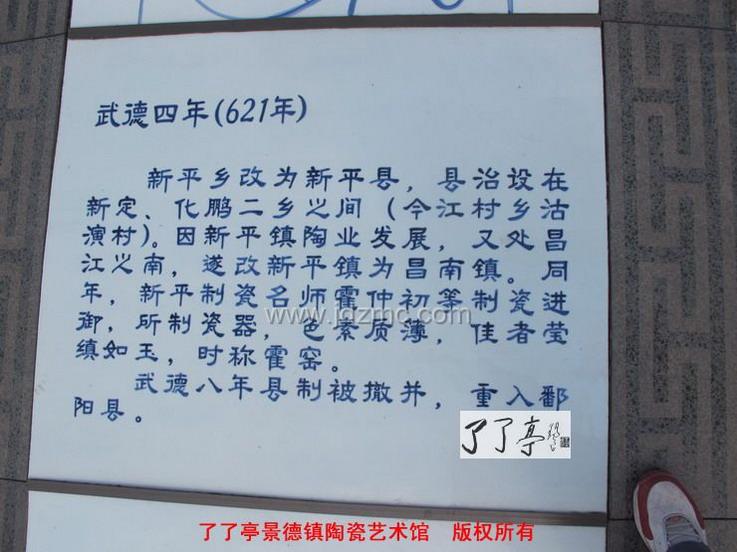 武德四年(621年)
新平乡改为新平县，县治设在
新定、化鹏二乡之间（今江村乡沽
演村)。因新平镇陶业发展，又处昌
江之南，遂改新平镇为昌南镇。同
年，新平制瓷名师霍仲初等制瓷进
御，所制瓷器，色素质薄，佳者莹
缜如玉，时称霍窑。
武德八年县制被撤并，重入鄱
阳县。
www.jdzmc.com
了了亭
了了亭景德镇陶瓷艺术馆 版权所有